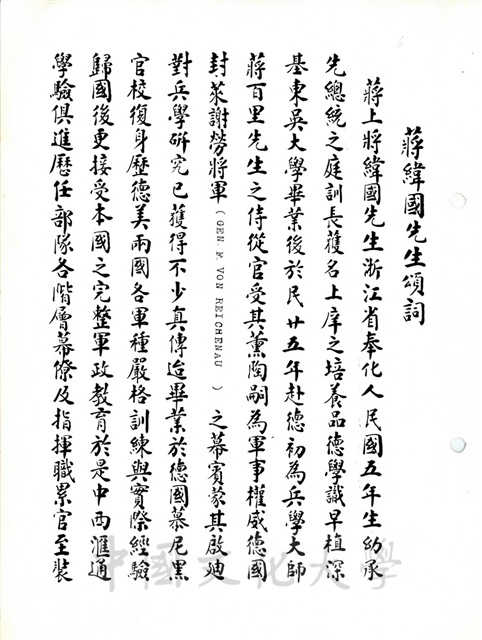 蔣緯國先生頌詞
蔣上將緯國先生浙江省奉化人民國五年生幼承
先總統之庭訓長獲名上庠之培養品德學識早植深
基東吳大學畢業後於民廿五年赴德初為兵學大師
蔣百里先生之侍從官受其薰陶嗣為軍事權威德國
封萊謝勞將軍（GEN. F. VON REICHENAU）之幕賓蒙其啟迪
對兵學研究已獲得不少真傳迨畢業於德國慕尼黑
官校復身歷德美兩國各軍種嚴格訓練與實際經驗
歸國後更接受本國之完整軍政教育於是中西滙通
學驗俱進歷任部隊各階層幕僚及指揮職累官至裝
中國文化大學